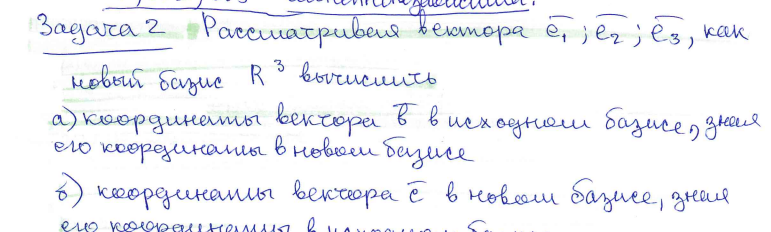 Задача 2 Рассматривая вектора e̅₁; e̅₂; e̅₃, как
новый базис R³ вычислить
а) координаты вектора b̅ в исходном базисе, зная
его координаты в новом базисе
б) координаты вектора c̅ в новом базисе, зная
его координаты в